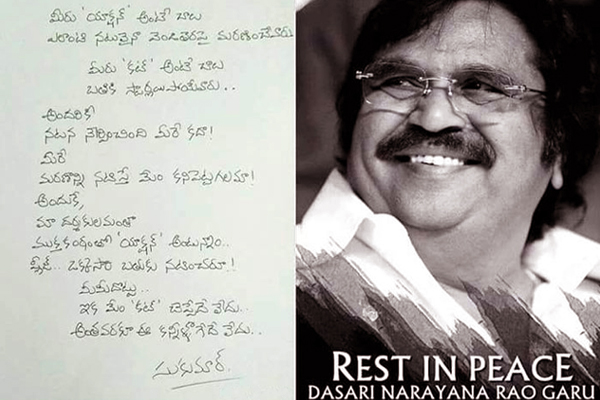 మీరు 'యాక్షన్' అంటే చాలు
ఎలాంటి నటుడైనా వెండితెరపై మరణించేవారు
మీరు 'కట్' అంటే చాలు
బతికి స్టార్లయిపోయేవారు..
అందరికీ
నటన నేర్పించింది మీరే కదా!
మీరే
మరణాన్ని నటిస్తే మేం కనిపెట్టగలమా!
అందుకే,
మా దర్శకులమంతా
ముక్తకంఠంతో 'యాక్షన్' అంటున్నాం..
ప్లీజ్.. ఒక్కసారి బతుకు నటించరూ!
మీమీదొట్టు..
ఇక మేం 'కట్' చెప్పేదే లేదు..
అంతవరకూ ఈ కన్నీళ్ళాగేదే లేదు..
సుకుమార్.
REST IN PEACE
DASARI NARAYANA RAO GARU